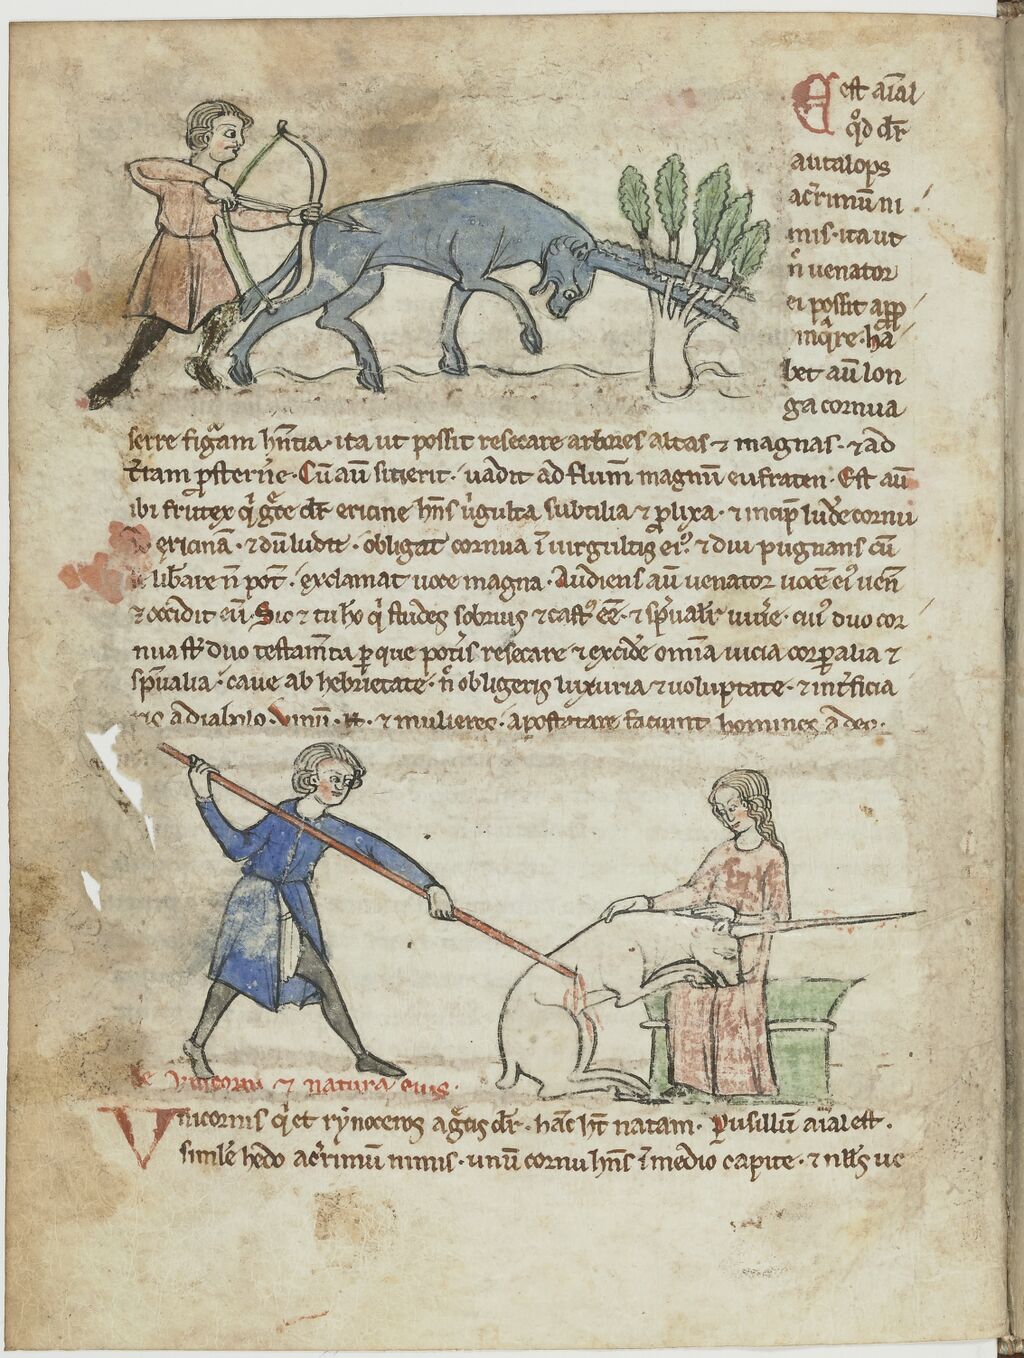 Est aīal
qͦd dr̄
autalops
ac̄rimūm ni
mis · ita ut
n̄ uenator
ei possit app
inq̄re · ha
bet aū lon
ga cornua
serre figᷓam hn̄tia · ita ut possit resecare arbores altas ⁊ magnas · ⁊ ad
t̄ram ꝓsterne · Cū aū sitierit · uadit ad flum̄ magnū eufraten · Est aū
ibi frutex qͥ gᷓce dr̄ ericine hn̄s uͥrgulta subtilia ⁊ ꝓlixa · ⁊ incip̄ ludͤe cornu
ericinā · ⁊ dū ludit · obligat cornua ī uirgultis eiꝰ · ⁊ diu pugnans cū
se lib̄are n̄ pot̄ · exclamat uoce magna · Audiens aū uenator uocē eiꝰ uen̄
⁊ occidit eū · Sic ⁊ tu ho qͥ studes sobrius ⁊ castꝰ ēē · ⁊ sp̄ualr̄ uiuͤe · cuiꝰ duo cor
nua st̄ duo testam̄ta ꝑ que potͥs resecare ⁊ excidͤe om̄ia uicia corꝑalia ⁊
sp̄ualia · caue ab hebrietate · n̄ obligeris luxuria ⁊ uoluptate · ⁊ int̄ficia
ris a diabolo · Vinū · n̄ · ⁊ mulieres · apostatare faciunt homines a deo ·
de vnicornu ⁊ natura eius ·
Vnicornis qͥ et rynoceros a gᷓcis dr̄ · hāc ht̄ natam · Pusillū aīal est ·
simile hedo ac̄rimū nimis · unū cornu hn̄s ī medio capite · ⁊ nll̄s ue